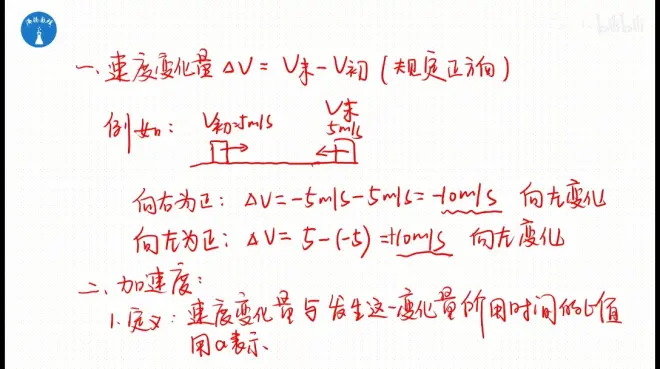 bilibili
一、速度变化量 ΔV = V末 - V初 (规定正方向)
例如: V初=5m/s V末
5m/s
向右为正: ΔV = -5m/s - 5m/s = -10m/s 向左变化
向左为正: ΔV = 5-(-5) = +10m/s 向左变化
二、加速度:
1.定义: 速度变化量与发生这一变化量所用时间的比值
用a表示、